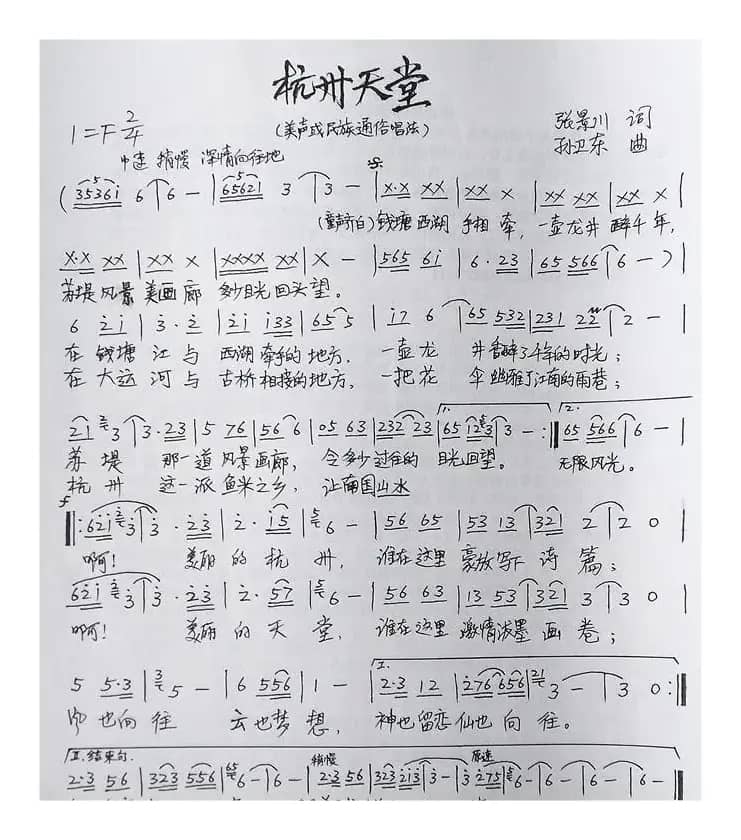 杭州天堂
1=F 2/4
(美声或民族通俗唱法)
张景川 词
孙卫东 曲
中速 稍慢 深情向往地
(35361 6 6 - | 65621 3 3 - | X·X XX | XX X | XX XX | XX X |
(童声齐白)钱塘西湖 手相牵, 一壶龙井 醉千年,
X·X XX | XX X | XXXX XX | X - | 565 61 | 6·23 | 65 566 | 6 - ) |
苏堤风景 美画廊 多少目光回头望。
6 21 | 3·2 | 21 133 | 65 5 | 17 6 | 65 532 | 231 22 | 2 - |
在 钱塘 江 与 西湖牵手的 地方, 一壶 龙 井香醉了千年的时光;
在 大运 河 与 古桥相接的地方, 一把 花 伞幽雅了江南的雨巷;
21 3 | 3·23 | 5 76 | 56 6 | 05 63 | 232 23 | 1. 65 123 | 3 - :‖ 2. 65 566 | 6 - |
苏 堤 那一道 风景画廊, 令多少过往的 目光回望。 无限风光。
杭 州 这一派 鱼米之乡, 让南国山水
f
‖: 621 3 | 3·23 | 2·15 | 6 - | 56 65 | 53 13 | 321 2 | 2 0 |
啊! 美丽 的 杭 州, 谁在这里 豪放写下 诗 篇;
621 3 | 3·23 | 2·57 | 6 - | 56 63 | 13 53 | 321 3 | 3 0 |
啊! 美丽 的 天 堂, 谁在这里 激情泼墨 画 卷;
5 5·3 | 5 - | 6 556 | 1 - | I. 2·3 12 | 276 656 | 3 - | 3 0 :‖
你 也向 往 云 也梦 想, 神也留恋仙也 向 往。
II.结束句 稍慢 原速
2·3 56 | 323 556 | 6 - | 6 - | 2·3 56 | 323 213 | 3 - | 3 275 | 6 - | 6 - | 6 - | 6 - ‖